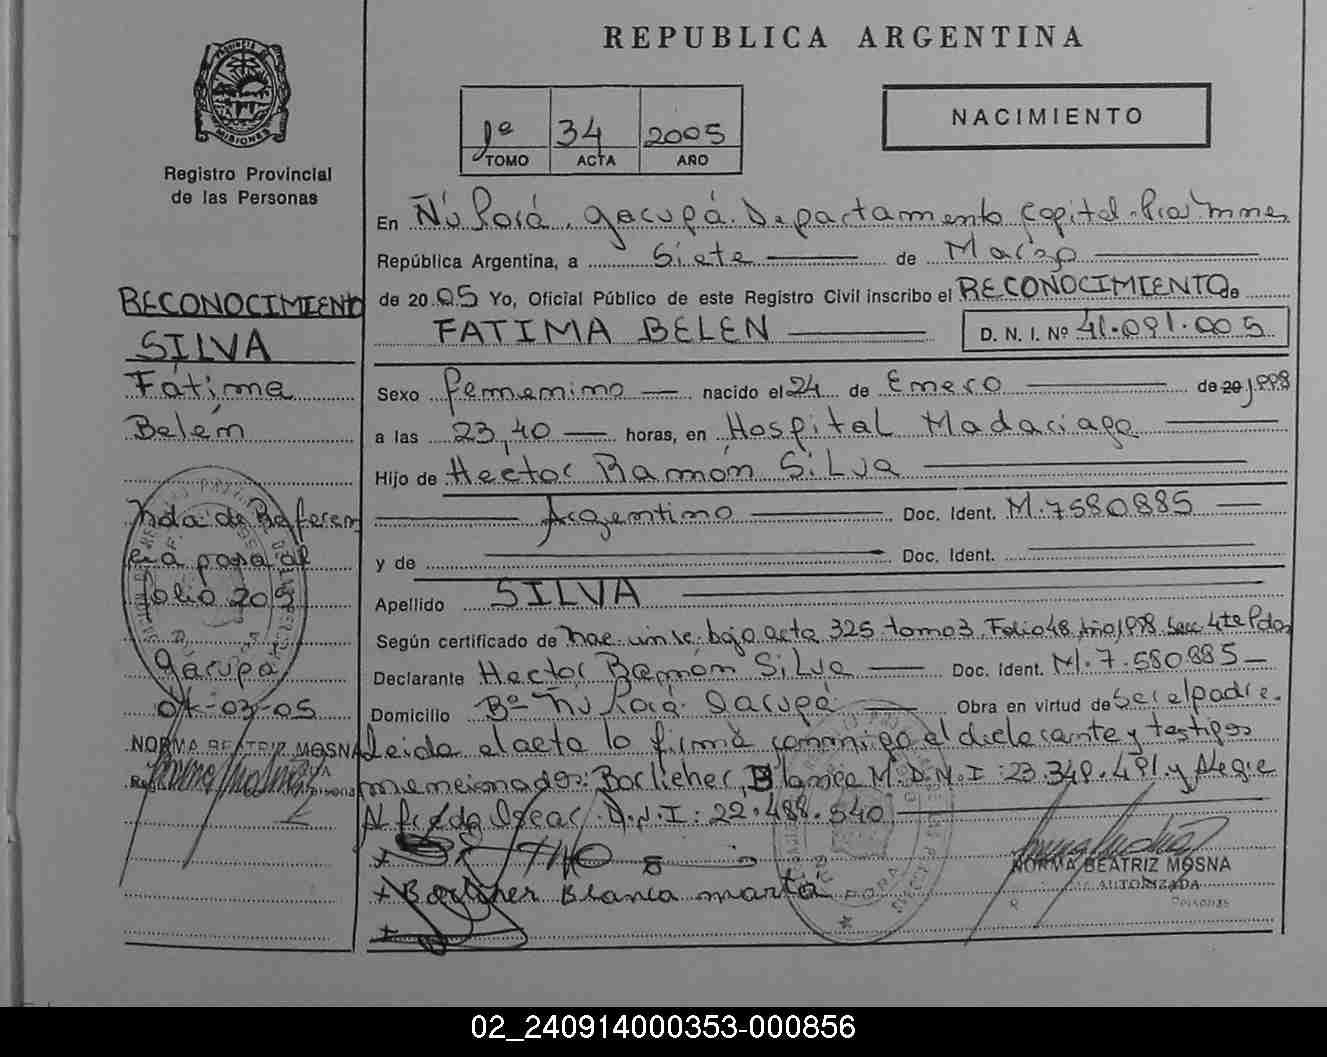 PROVINCIA DE
MISIONES
Registro Provincial
de las Personas
RECONOCIMIENTO
SILVA
Fátima
Belém
Nota de Referen
cia pasa al
folio 209
Garupá
04-03-05
NORMA BEATRIZ MOSNA
REPUBLICA ARGENTINA
1º 34 2005
TOMO ACTA AÑO
NACIMIENTO
En Ñú Porá, Garupá. Departamento Capital. Pcia Mnes
República Argentina, a Siete de Marzo
de 2005 Yo, Oficial Público de este Registro Civil inscribo el RECONOCIMIENTO de
FATIMA BELEN D. N. I. Nº 41.091.005
Sexo femenino nacido el 24 de Enero de 20 1998
a las 23,40 horas, en Hospital Madariaga
Hijo de Hector Ramón Silva
Argentino Doc. Ident. M.7580885
y de Doc. Ident.
Apellido SILVA
Según certificado de bajo acta 325 tomo 3 Folio 48 Año 1998 Secc 4ta Pdas
Declarante Hector Ramón Silva Doc. Ident. M.7.580.885
Domicilio Bº Ñú Porá Garupá Obra en virtud de Ser el padre.
Leida el acta la firma conmigo el declarante y testigos
mencionados: Barlieher, Blanca M. D.N.I: 23.349.491. y Alegre
Alfredo Oscar. D.N.I: 22.488.540
Blanca marta
NORMA BEATRIZ MOSNA
AUTORIZADA
02_240914000353-000856